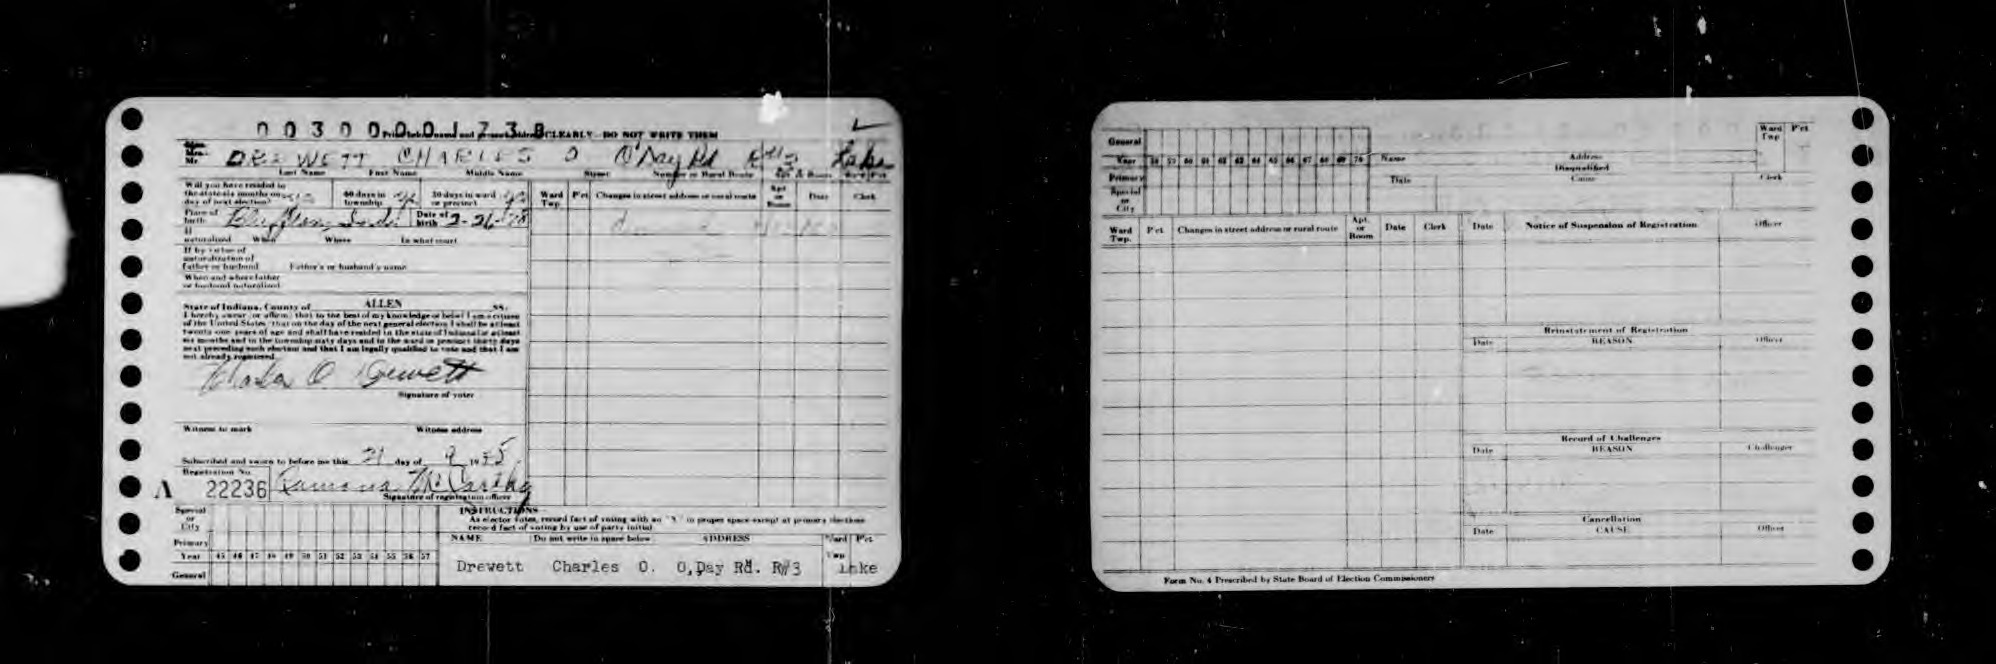 00300001738
Print below name and present address CLEARLY - DO NOT WRITE THEM
Miss.
Mrs.
Mr. DREWETT CHARLES O O'Day Rd R#3 Lake
Last Name First Name Middle Name Street Number or Rural Route Apt. & Room Ward Pct
Will you have resided in the state six months on day of next election? 60 days in township 30 days in ward or precinct
Place of birth Bluffton, Ind. Date of birth 2-26-
If naturalized When Where In what court
If by virtue of naturalization of father or husband Father's or husband's name
When and where father or husband naturalized
State of Indiana, County of ALLEN SS.
I hereby swear (or affirm) that to the best of my knowledge or belief I am a citizen
of the United States, that on the day of the next general election I shall be at least
twenty-one years of age and shall have resided in the state of Indiana for at least
six months and in the township sixty days and in the ward or precinct thirty days
next preceding such election and that I am legally qualified to vote and that I am
not already registered.
Charles O Drewett
Signature of voter
Witness to mark Witness address
Subscribed and sworn to before me this 21 day of 9 1955
Registration No.
A 22236 Ramona McCarthy
Signature of registration officer
Ward Twp. P'ct Changes in street address or rural route Apt or Room Date Clerk
Special or City
Primary
Year 45 46 47 48 49 50 51 52 53 54 55 56 57
General
INSTRUCTIONS
As elector votes, record fact of voting with an "X" in proper space except at primary elections
record fact of voting by use of party initial.
NAME Do not write in space below ADDRESS Ward Twp P'ct
Drewett Charles O. O,Day Rd. R#3 Lake
General
Year 58 59 60 61 62 63 64 65 66 67 68 69 70
Primary
Special or City
Name Address Ward Twp P'ct
Disqualified
Date Cause Clerk
Ward Twp. P'ct Changes in street address or rural route Apt. or Room Date Clerk
Date Notice of Suspension of Registration Officer
Reinstatement of Registration
Date REASON Officer
Record of Challenges
Date REASON Challenger
Cancellation
Date CAUSE Officer
Form No. 4 Prescribed by State Board of Election Commissioners